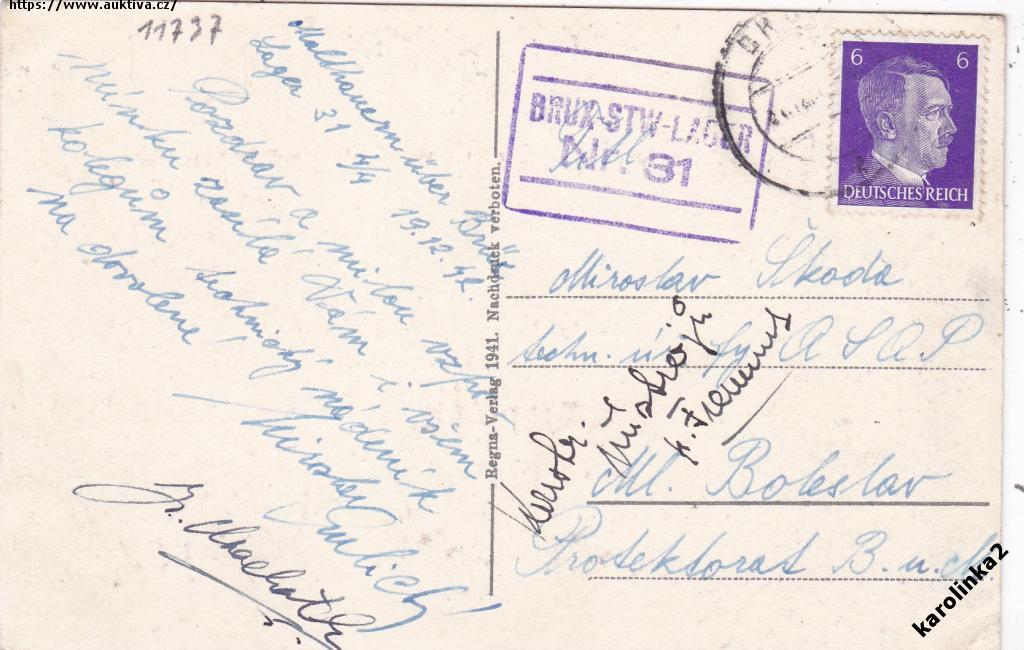 https://www.auktiva.cz/
11737
Maltheuern über Brüx
Lager 31 4/4 19.12.42.
Pozdrav a milou vzpo-
mínku zasílá Vám i všem
kolegům technický nádeník
na dovolené
Miroslav
BRÜX-STW-LAGER
Nr. 31
6 6
DEUTSCHES REICH
Regna-Verlag 1941. Nachdruck verboten.
Miroslav Škoda
techn. úř. fy. ASAP
Ml. Boleslav
Protektorat B. u. M.
karolinka2